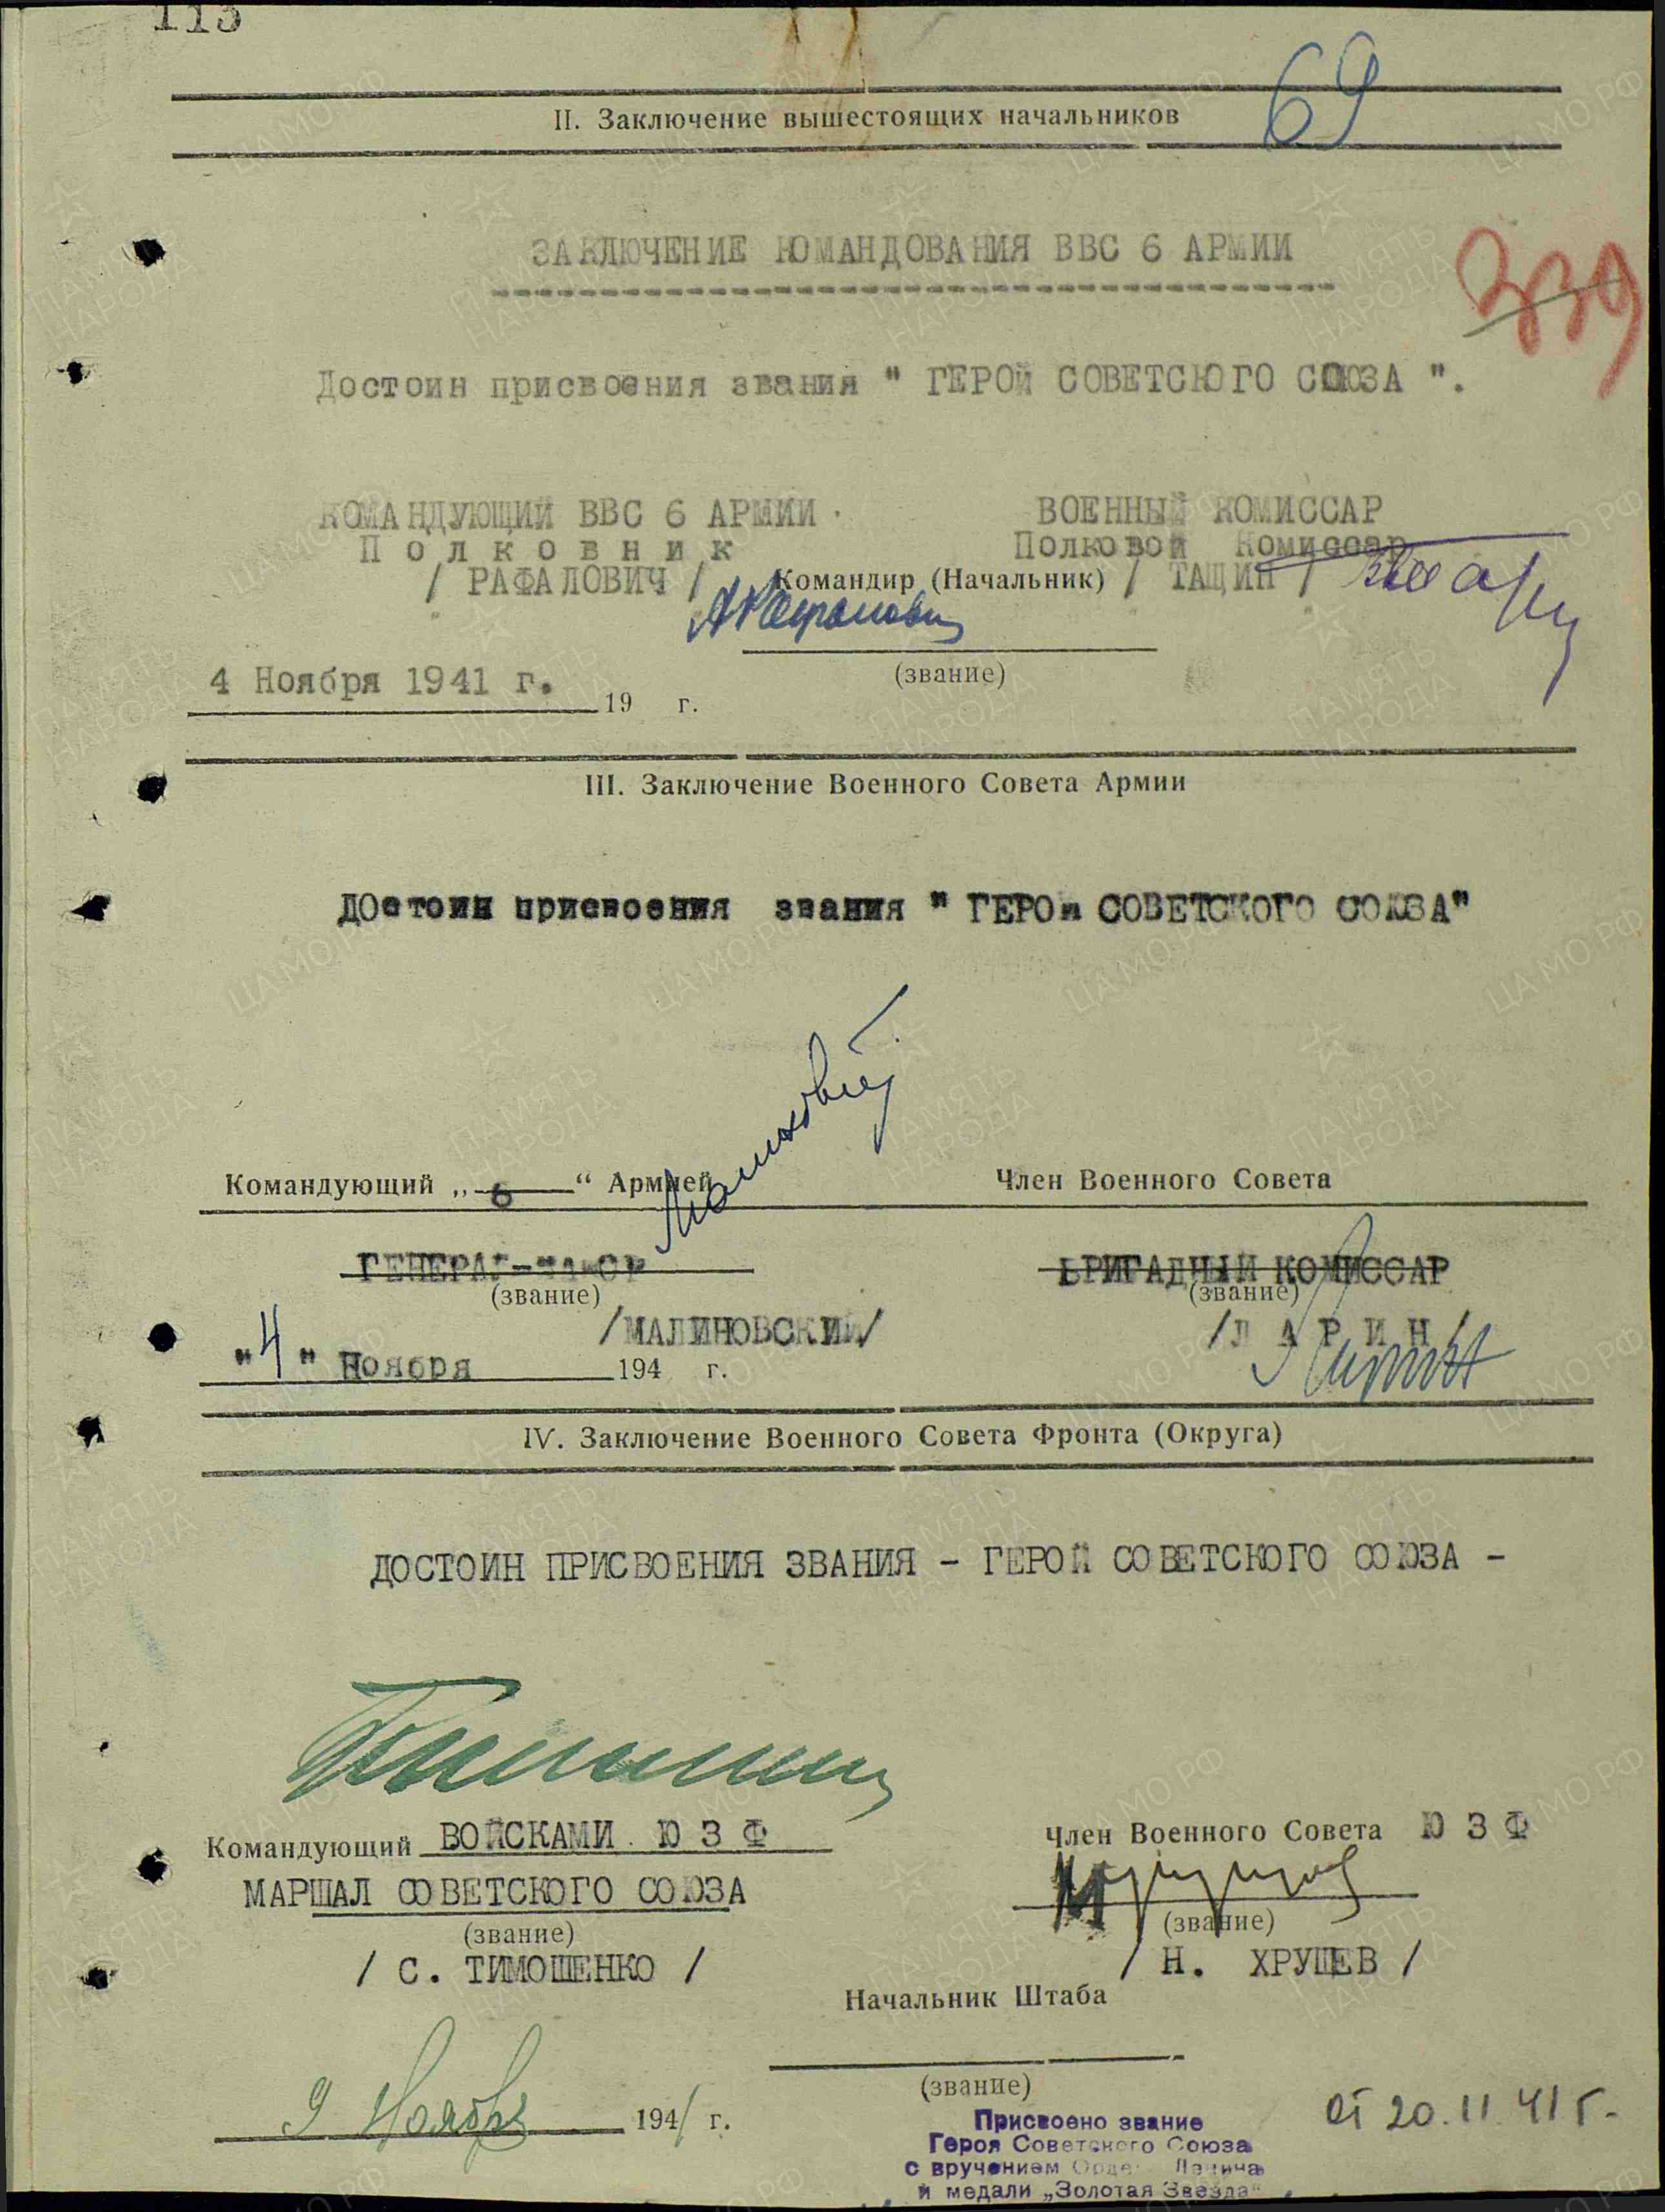 115
69
II. Заключение вышестоящих начальников
ЗАКЛЮЧЕНИЕ КОМАНДОВАНИЯ ВВС 6 АРМИИ
339
Достоин присвоения звания " ГЕРОЙ СОВЕТСКОГО СОЮЗА ".
КОМАНДУЮЩИЙ ВВС 6 АРМИИ
ВОЕННЫЙ КОМИССАР
Полковник
Полковой Комиссар
/ РАФАЛОВИЧ /
Командир (Начальник)
/ ТАЩИН /
(звание)
4 Ноября 1941 г.
19 г.
III. Заключение Военного Совета Армии
Достоин присвоения звания " ГЕРОЙ СОВЕТСКОГО СОЮЗА"
Командующий „ 6 “ Армией
Член Военного Совета
ГЕНЕРАЛ-МАЙОР
БРИГАДНЫЙ КОМИССАР
(звание)
(звание)
/МАЛИНОВСКИЙ/
/Л А Р И Н/
"4" Ноября 194 г.
IV. Заключение Военного Совета Фронта (Округа)
ДОСТОИН ПРИСВОЕНИЯ ЗВАНИЯ - ГЕРОЙ СОВЕТСКОГО СОЮЗА -
Командующий ВОЙСКАМИ Ю З Ф
Член Военного Совета Ю З Ф
МАРШАЛ СОВЕТСКОГО СОЮЗА
(звание)
(звание)
/ С. ТИМОШЕНКО /
/ Н. ХРУЩЕВ /
Начальник Штаба
(звание)
9 Ноября 1941 г.
Присвоено звание
Героя Советского Союза
с вручением Ордена Ленина
и медали „Золотая Звезда“
от 20.11.41 г.